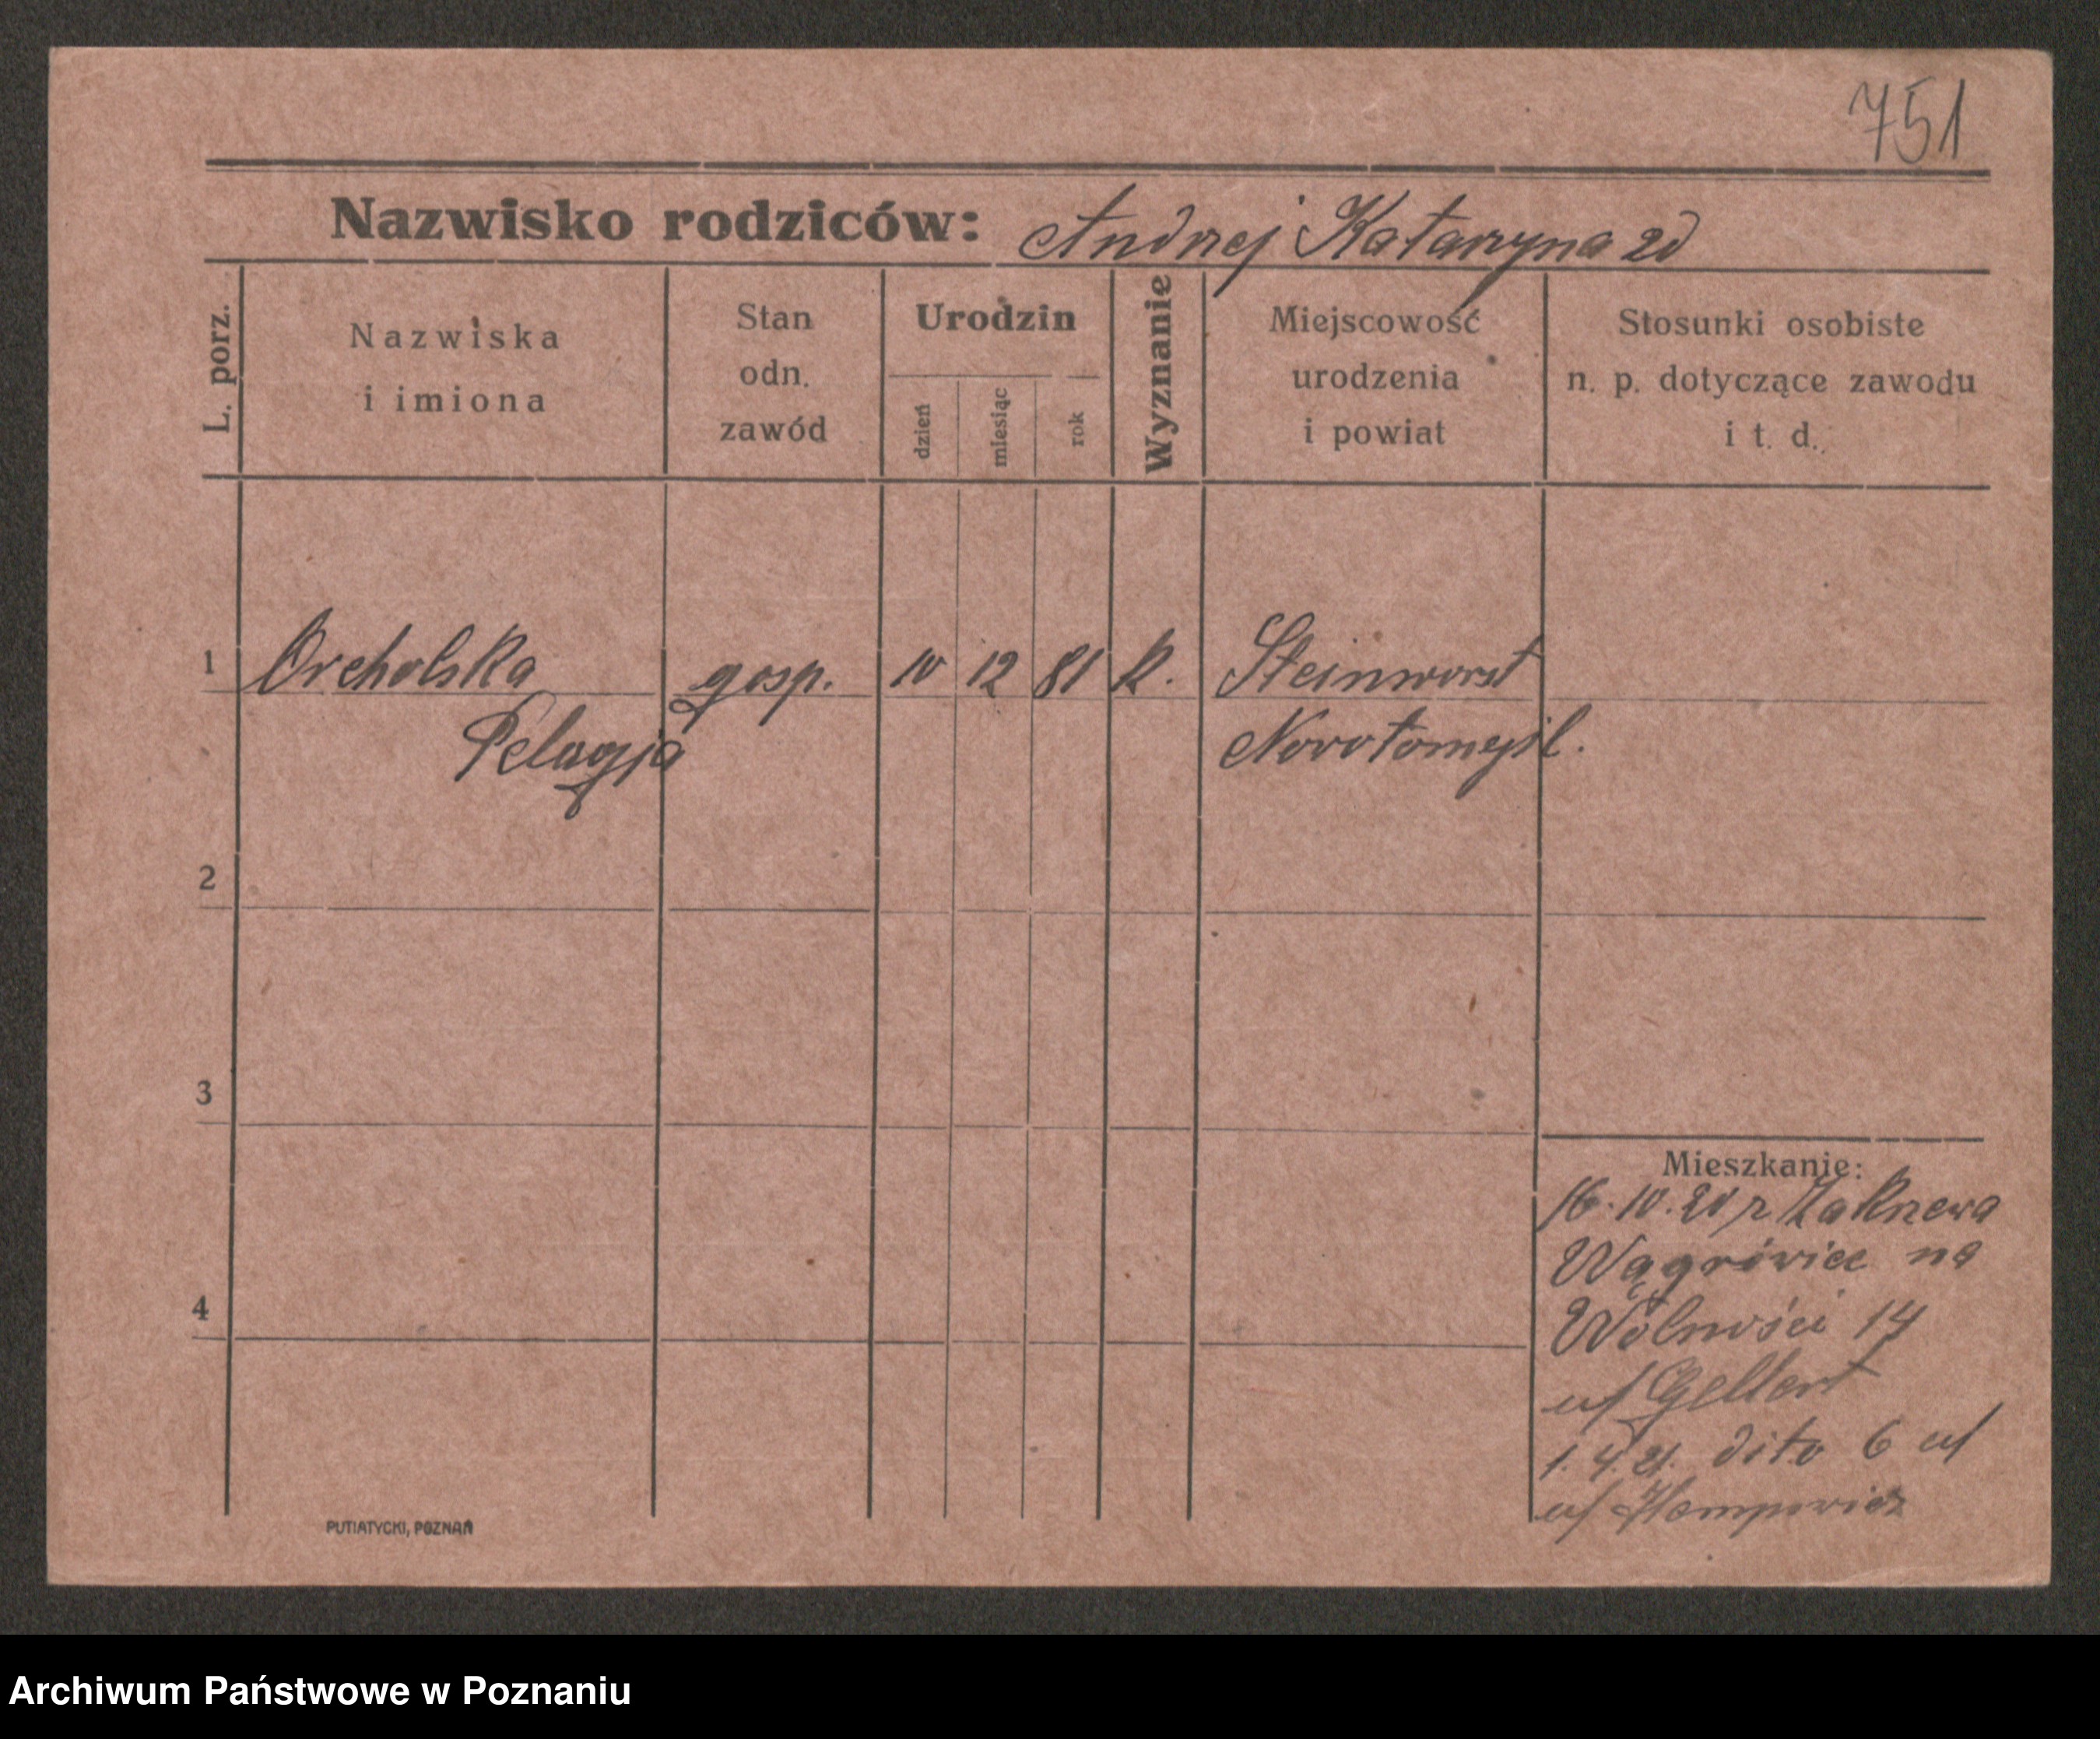 751
Nazwisko rodziców: Andrzej Katarzyna zd
L. porz.
Nazwiska
i imiona
Stan
odn.
zawód
Urodzin
dzień
miesiąc
rok
Wyznanie
Miejscowość
urodzenia
i powiat
Stosunki osobiste
n. p. dotyczące zawodu
i t. d.
1 Orcholska gosp. 10 12 81 k. Steinworst
Pelagja Nowotomyśl.
2
3
4
Mieszkanie:
16.10.20 r
Wągrówiec na
Wolności 14
u/ Gellert
1.4.21. dito 6
PUTIATYCKI, POZNAŃ
Archiwum Państwowe w Poznaniu